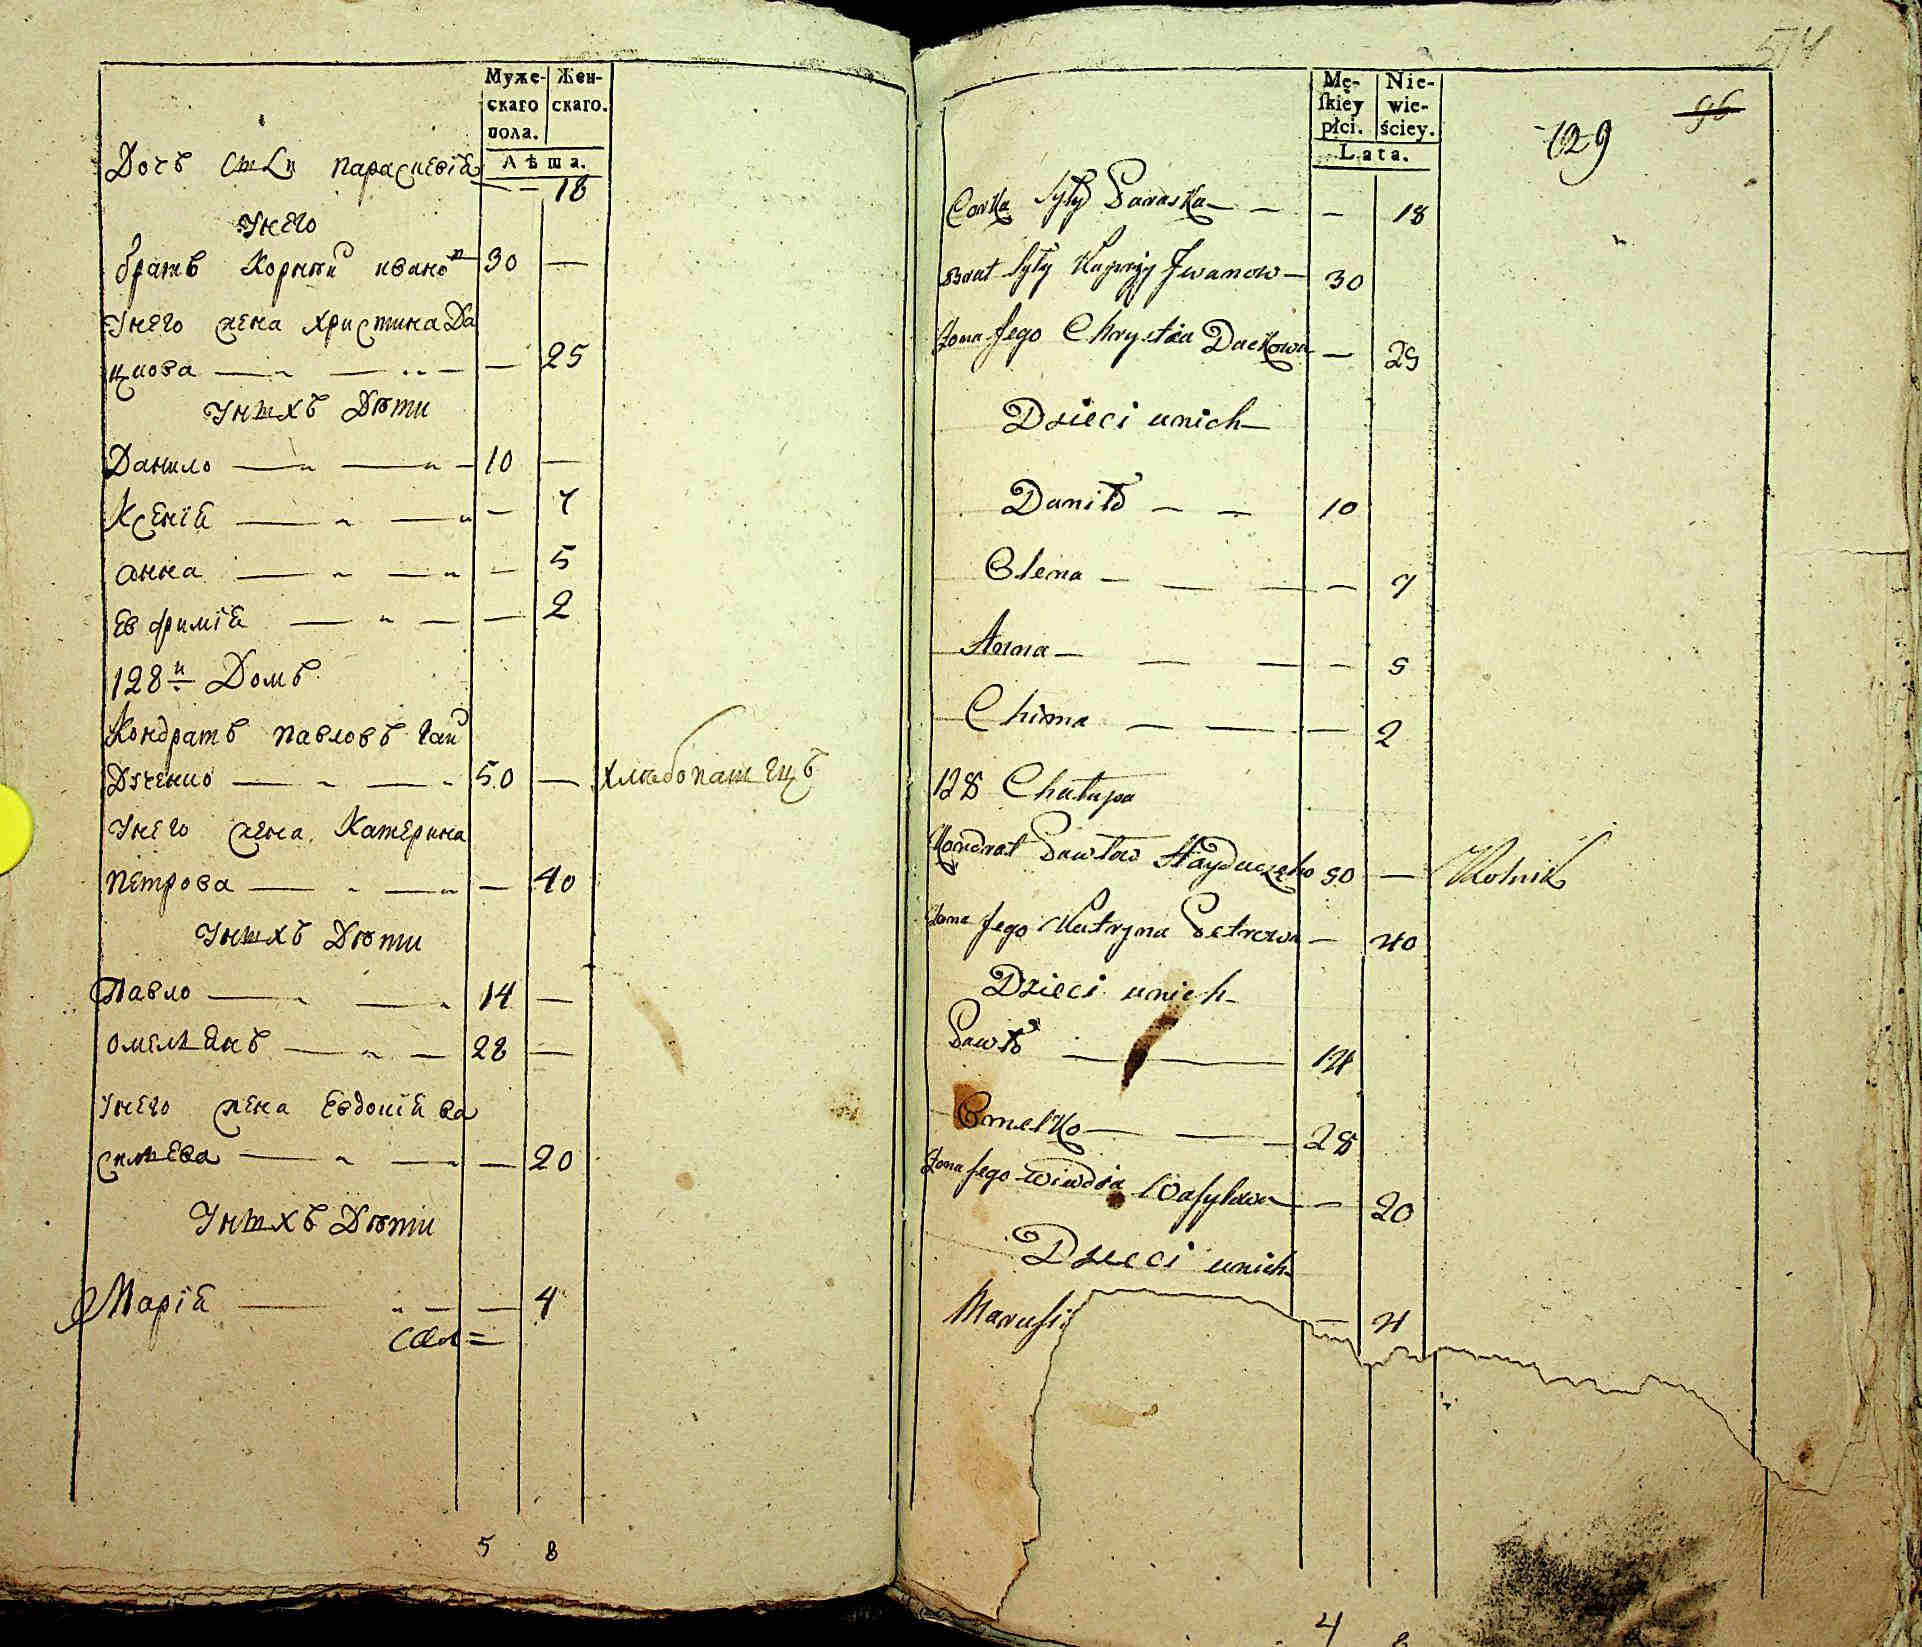 Муже-
скаго
пола.
Жен-
скаго.
Лѣта.
Дочь Параскевія — 18
Унего
братъ Корній ивано 30 —
Унего жена христина Да
цкова — — 25
Унихъ Дѣти
Данило — — 10 —
Ксенія — — — 7
анна — — — 5
Евфимія — — — 2
128й Домъ
Кондратъ павловъ Гай
дученко — — 50 — хлѣбопашецъ
Унего жена Катерина
петрова — — — 40
Унихъ Дѣти
Павло — — 14 —
омельянъ — — 28 —
Унего жена Евдокія ва
сильева — — — 20
Унихъ Дѣти
Марія — — — 4
5 8
514
96
129
Mę-
ſkiéy
płci.
Nie-
wie-
ściey.
Lata.
Corka Syły Paraska — — — 18
Brat Syły Iwanow — 30
Żona Jego Chrystia Dackowa — 25
Dzieci unich
Daniło — — 10
Olena — — — — 7
Anna — — — — 5
Chima — — — 2
128 Chałupa
Kondrat Pawłow Hayduczęko 50 — Rolnik
Żona Jego Katryna Petrowa — 40
Dzieci unich
Pawło — 14
Omelko — — — 28
Żona Jego Wiwdia Wasylowa — 20
Dzieci unich
Marusi — 4
4 8